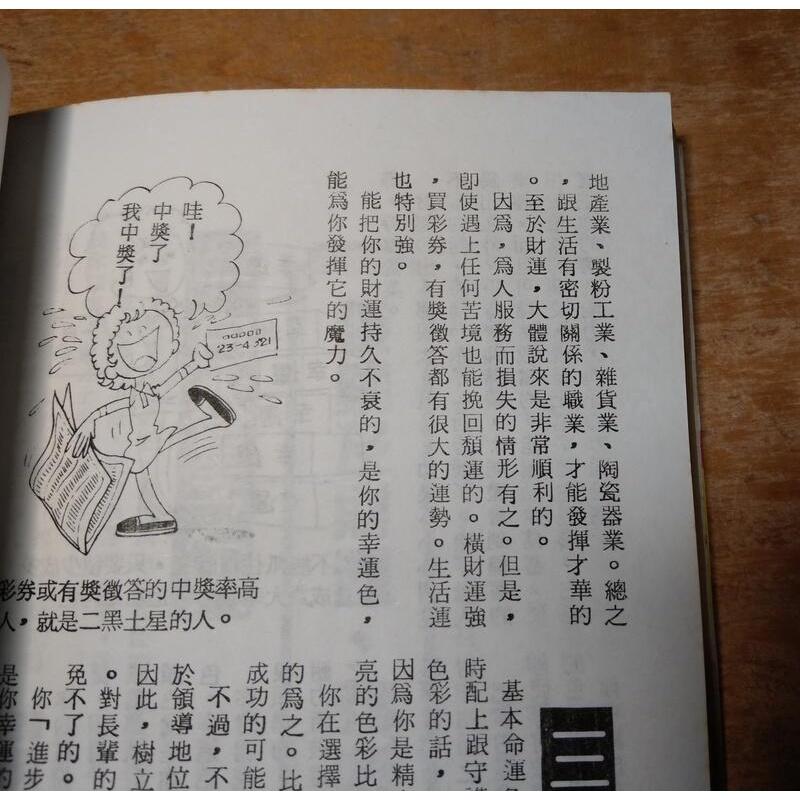 地產業、製粉工業、雜貨業、陶瓷器業。總之
，跟生活有密切關係的職業，才能發揮才華的
。至於財運，大體說來是非常順利的。
因為，為人服務而損失的情形有之。但是，
即使遇上任何苦境也能挽回頹運的。橫財運強
，買彩券，有獎徵答都有很大的運勢。生活運
也特別強。
能把你的財運持久不衰的，是你的幸運色，
能為你發揮它的魔力。
哇！
中獎了
我中獎了！
23-4 521
彩券或有獎徵答的中獎率高
人，就是二黑土星的人。
三
基本命運
時配上跟守
色彩的話，
因為你是精
亮的色彩比
你在選擇
的為之。比
成功的可能
不過，不
於領導地位
因此，樹立
。對長輩的
免不了的。
你「進步
是
你幸運的